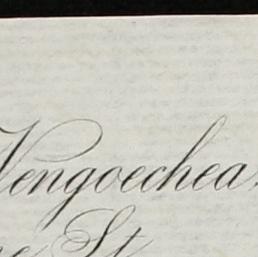 Vengoechea.
St